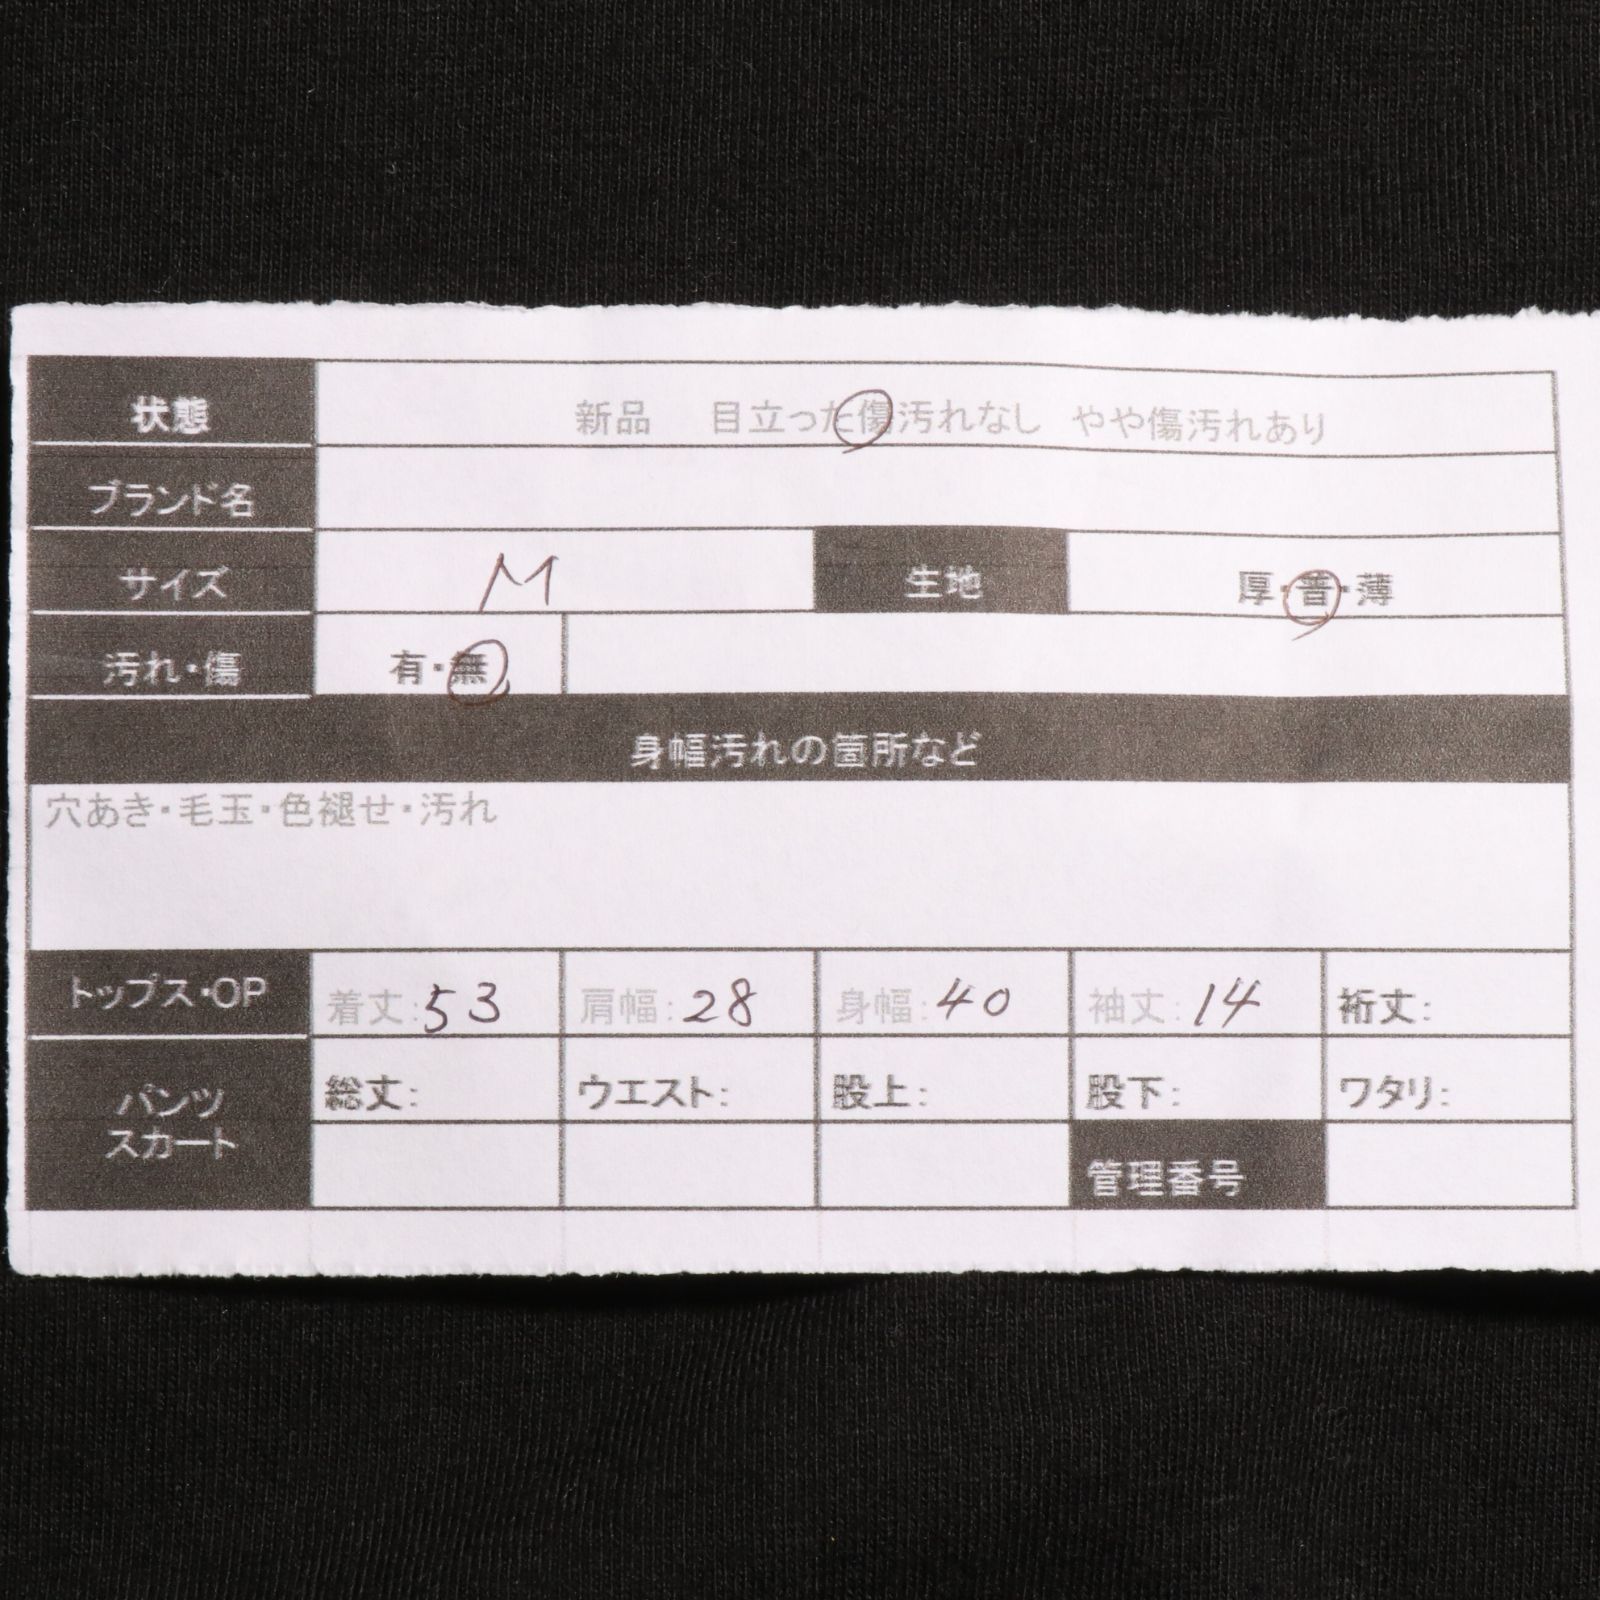 状態 新品 目立った傷汚れなし やや傷汚れあり
ブランド名
サイズ M 生地 厚・普・薄
汚れ・傷 有・無
身幅汚れの箇所など
穴あき・毛玉・色褪せ・汚れ
トップス・OP 着丈:53 肩幅:28 身幅:40 袖丈:14 裄丈:
パンツ
スカート
総丈: ウエスト: 股上: 股下: ワタリ:
管理番号